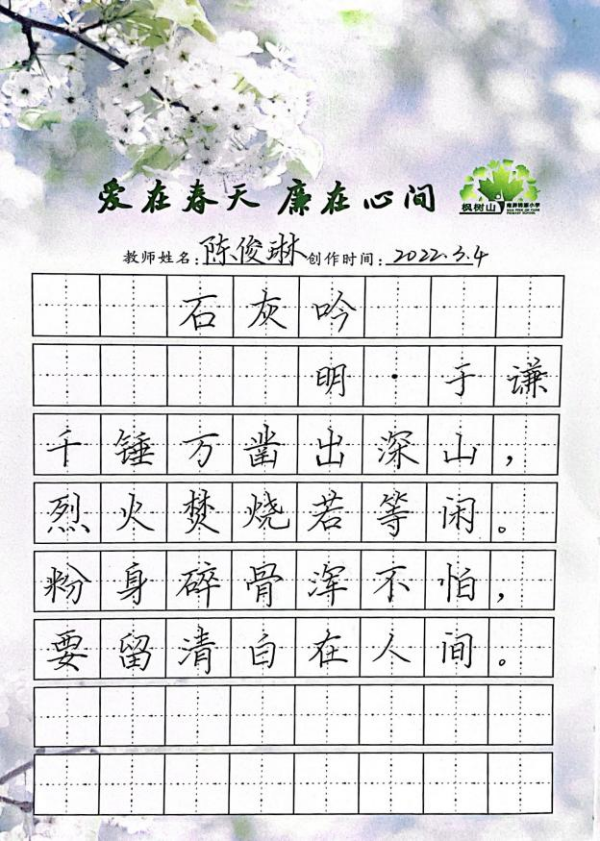 爱在春天 廉在心间
枫树山
教师姓名:陈俊琳 创作时间:2022.3.4
石灰吟
明·于谦
千锤万凿出深山,
烈火焚烧若等闲。
粉身碎骨浑不怕,
要留清白在人间。